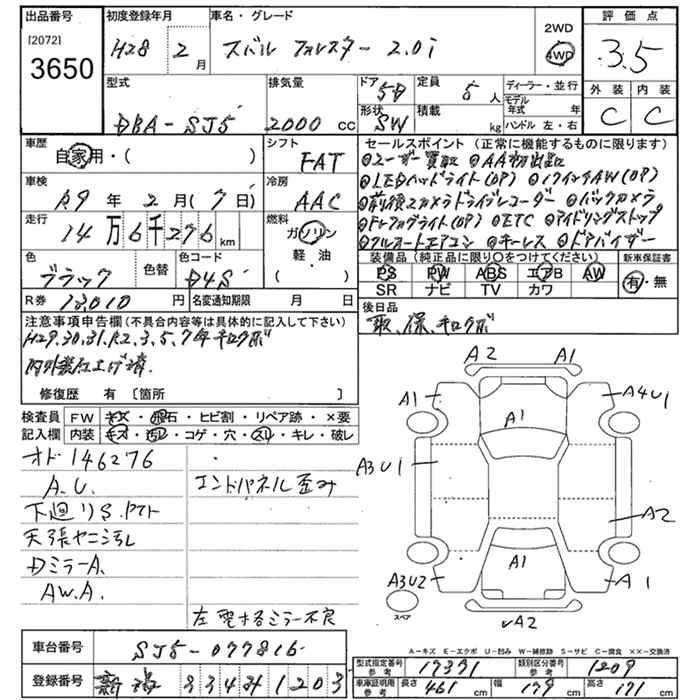 出品番号
[2072]
3650
初度登録年月
H28 2月
車名・グレード
スバル フォレスター 2.0i
2WD
4WD
評価点
3.5
外装 内装
C C
型式
DBA-SJ5
排気量
2000 cc
ドア
5D
形状
SW
定員
5人
積載
kg
ディーラー・並行
モデル年式 年
ハンドル 左・右
車歴
自家用・( )
シフト
FAT
車検
R9年 2月(7日)
冷房
AAC
走行
14万6千276km
燃料
ガソリン
軽・油
( )
色
ブラック
色替
色コード
D4S
R券
13010円
名変通知期限 月 日
セールスポイント (正常に機能するものに限ります)
◎ユーザー買取 ◎AA初出品
◎LEDヘッドライト(OP) ◎17インチAW(OP)
◎前後2カメラドライブレコーダー ◎バックカメラ
◎Frフォグライト(OP) ◎ETC ◎アイドリングストップ
◎フルオートエアコン ◎キーレス ◎ドアバイザー
装備品 (純正品に限り○をつけてください)
PS PW ABS エアB AW
SR ナビ TV カワ
新車保証書
有・無
後日品
取、保、キロクボ
注意事項申告欄 (不具合内容等は具体的に記入して下さい)
H29.30.31.R2.3.5.7年キロクボ
内外装仕上げ済.
修復歴 有 〔箇所 〕
検査員記入欄
FW キズ・飛石・ヒビ割・リペア跡・×要
内装 キズ・汚れ・コゲ・穴・スレ・キレ・破レ
オド146276
A.U.
下廻りS.
天張ヤニ汚レ
Dミラー A.
AW.A.
エンドパネル歪み
左電キるミラー不良
A2 A1
A1 A4U1
A1
A3U1
A2
A1
A3U2 A1
A2
スペア
A-キズ E-エクボ U-凹み W-補修跡 S-サビ C-腐食 ××-交換済
車台番号
SJ5-077816
型式指定番号
参考
17331
類別区分番号
参考
1209
登録番号
334 1203
車庫証明用
参考
長さ 461cm
幅 179cm
高さ 171cm